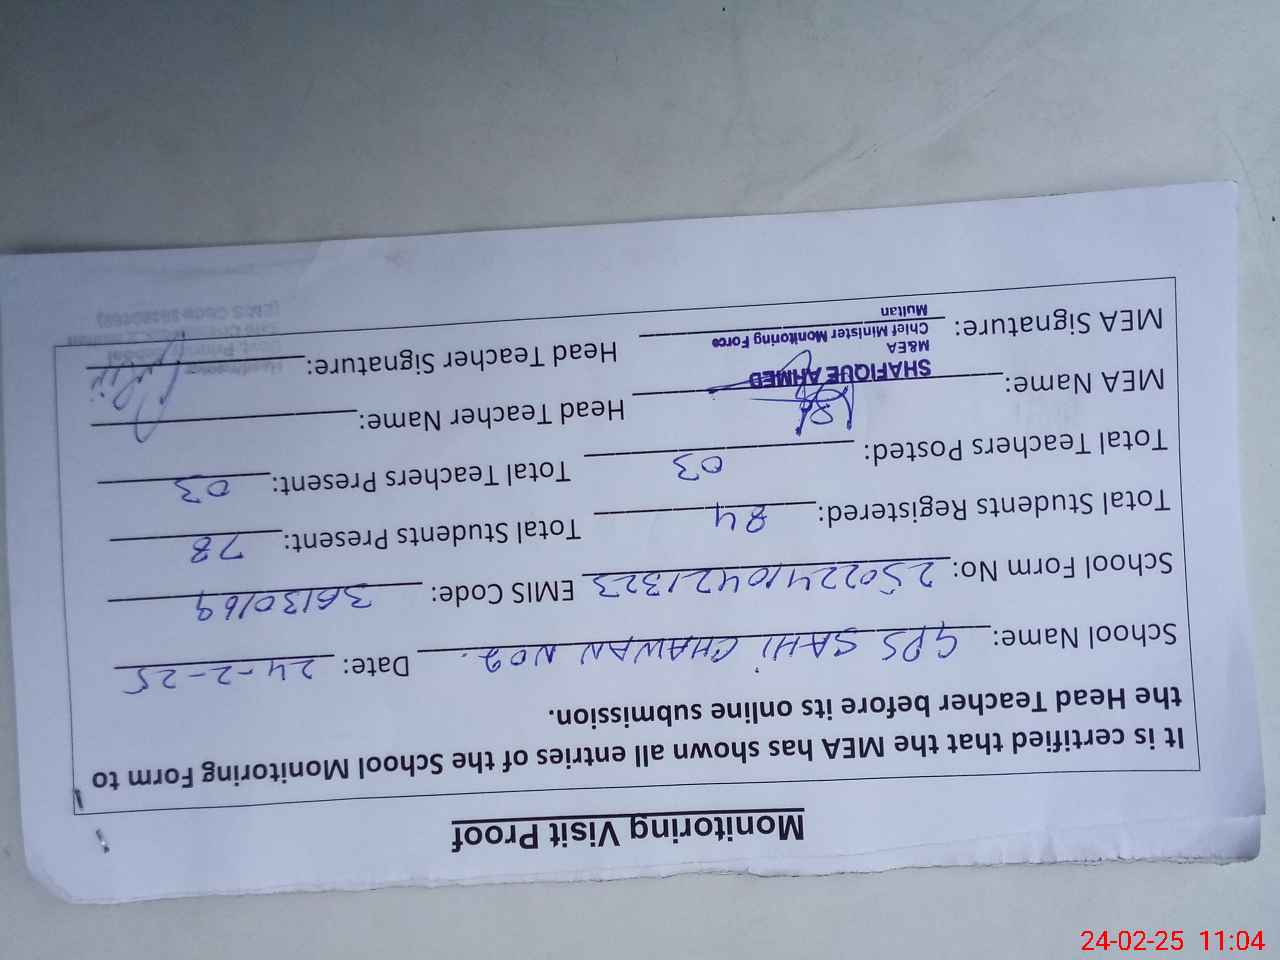 Monitoring Visit Proof
It is certified that the MEA has shown all entries of the School Monitoring Form to
the Head Teacher before its online submission.
School Name: GPS SAHI CHAWAN NO 2. Date: 24-2-25
School Form No: 25022410421323 EMIS Code: 36130169
Total Students Registered: 84 Total Students Present: 78
Total Teachers Posted: 03 Total Teachers Present: 03
MEA Name: Head Teacher Name:
SHAFIQUE AHMED
M&EA
Chief Minister Monitoring Force
Multan
MEA Signature: Head Teacher Signature:
24-02-25 11:04